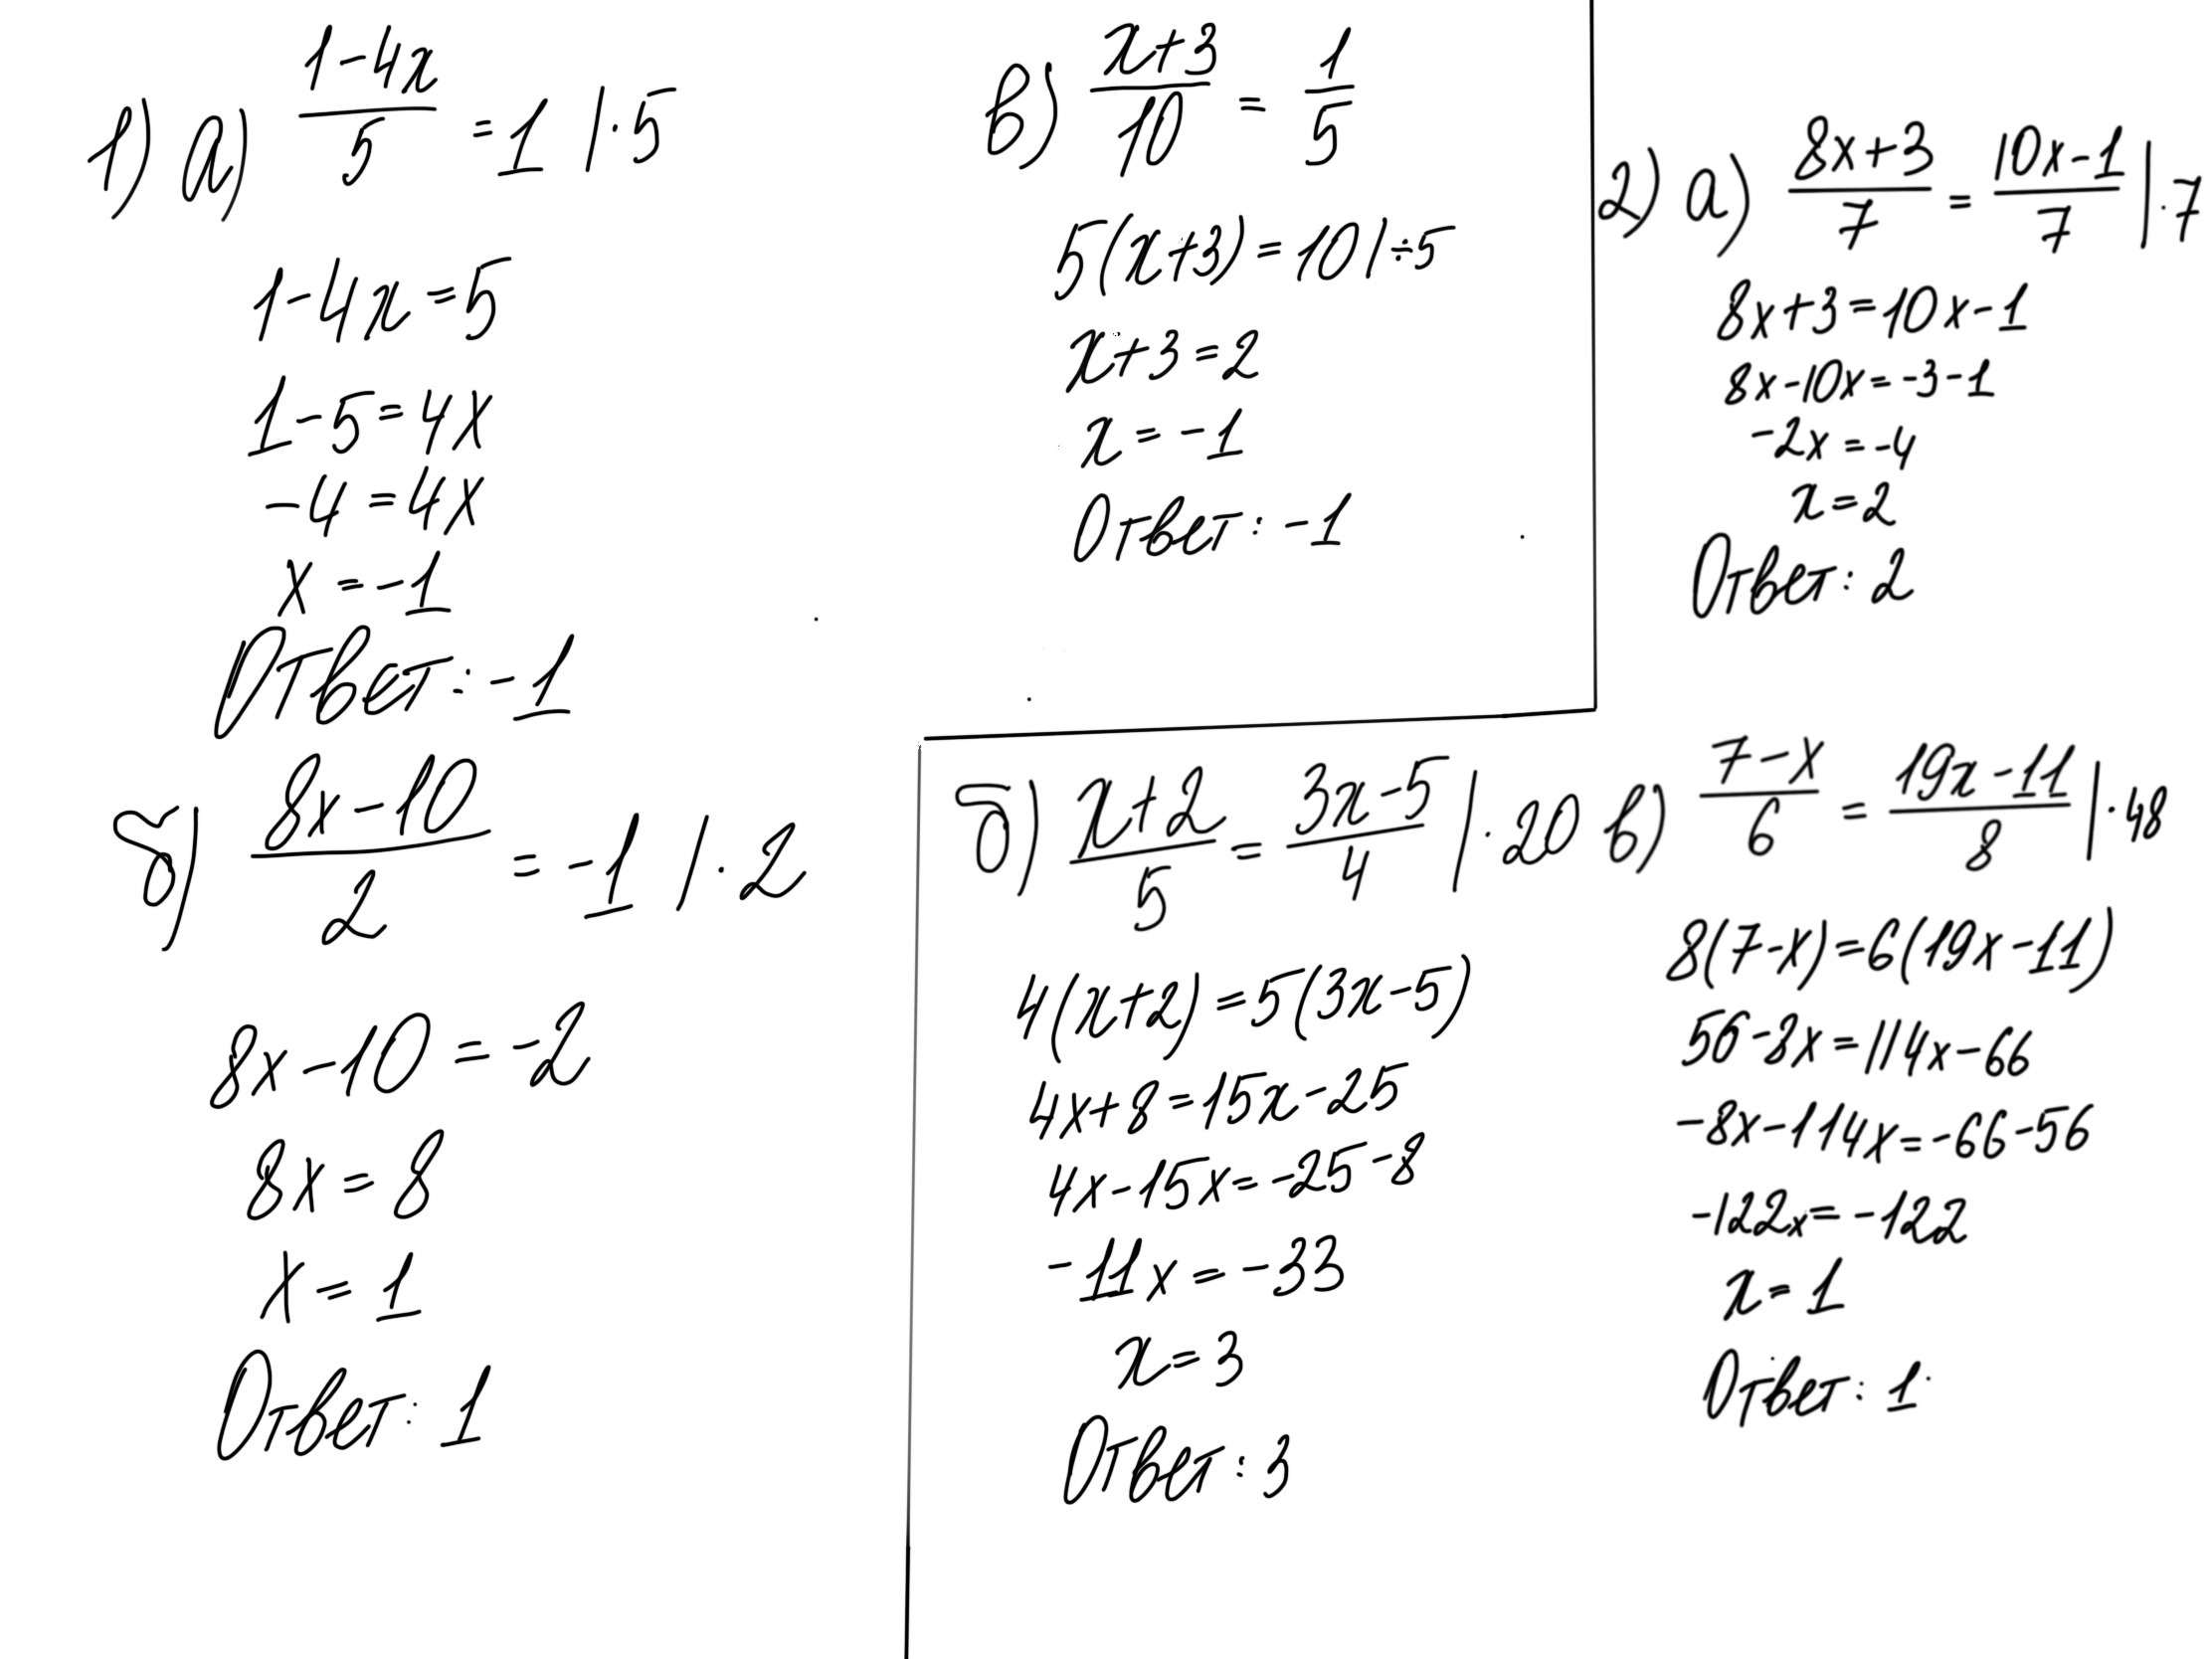 1) а) (1-4x)/5 = 1 | · 5
1-4x=5
1-5=4x
-4=4x
x=-1
Ответ: -1
б) (8x-10)/2 = -1 | · 2
8x-10=-2
8x=8
x=1
Ответ: 1
в) (x+3)/10 = 1/5
5(x+3)=10 | ÷5
x+3=2
x=-1
Ответ: -1
2) а) (8x+3)/7 = (10x-1)/7 | · 7
8x+3=10x-1
8x-10x=-3-1
-2x=-4
x=2
Ответ: 2
б) (x+2)/5 = (3x-5)/4 | · 20
4(x+2)=5(3x-5)
4x+8=15x-25
4x-15x=-25-8
-11x=-33
x=3
Ответ: 3
в) (7-x)/6 = (19x-11)/8 | · 48
8(7-x)=6(19x-11)
56-8x=114x-66
-8x-114x=-66-56
-122x=-122
x=1
Ответ: 1